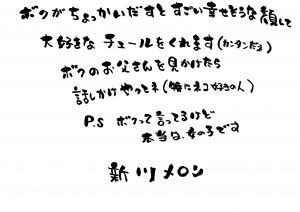 ボクがちょっかいだすとすごい幸せそうな顔して
大好きなチュールをくれます(カンタンだよ)
ボクのお父さんを見かけたら
話しかけやってネ(特にネコ好きの人)
P.S ボクって言ってるけど
本当は、女の子です
新川メロン